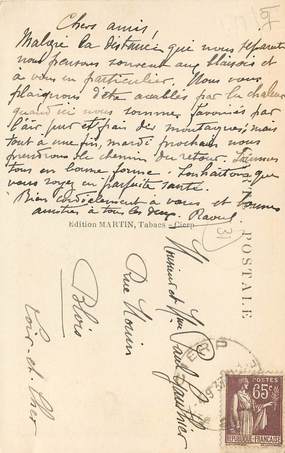 Chers amis!
Malgré la distance qui nous sépare
nous pensons souvent aux blaisois et
à vous en particulier. Nous vous
plaignons d'être accablés par la chaleur
quand ici nous sommes favorisés par
l'air pur et frais des montagnes; mais
tout a une fin, mardi prochain nous
prendrons le chemin du retour. Sommes
tous en bonne forme. Souhaitons que
vous soyez en parfaite santé.
Bien cordialement à vous et bonnes
amitiés à tous les deux. Raoul
Edition MARTIN, Tabacs - Cierp
POSTALE
Monsieur et Mme Paul Gauthier
Rue
Blois
Loir-et-Cher
POSTES
65c
REPUBLIQUE FRANÇAISE